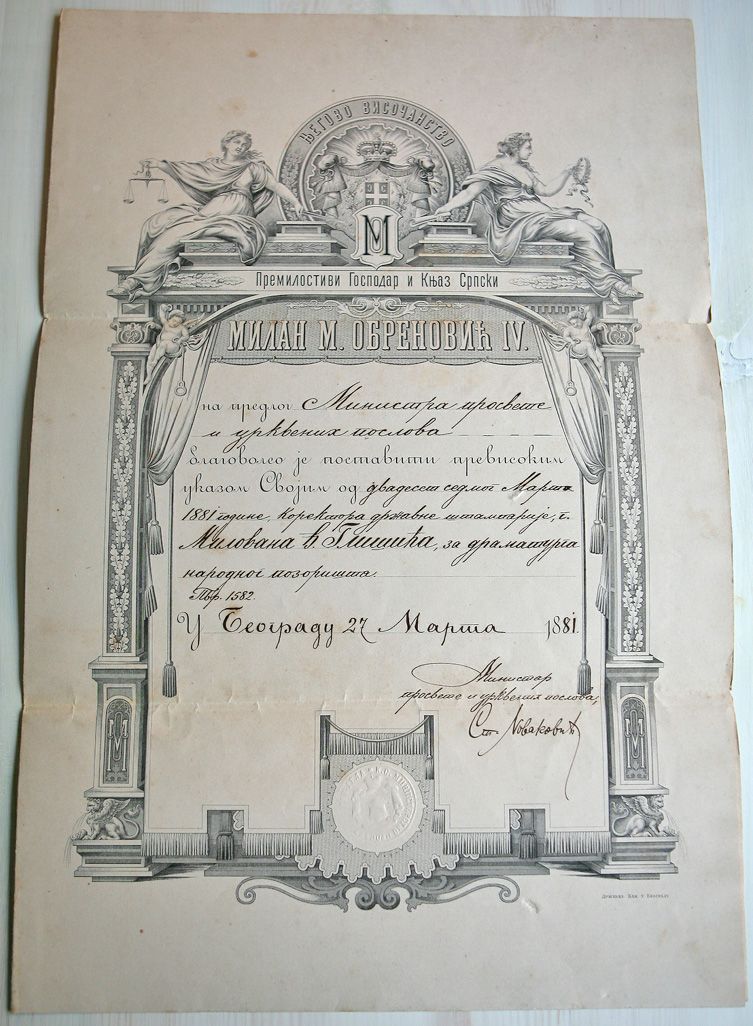 ЊЕГОВО ВИСОЧАНСТВО
М
Премилостиви Господар и Књаз Српски
МИЛАН М. ОБРЕНОВИЋ IV.
на предлог Министра просвете
и црквених послова
благоволео је поставити превисоким
указом Својим од двадесет седмог Марта
1881 године, коректора државне штампарије, г.
Милована Ђ. Глишића, за драматурга
народног позоришта.
Пбр. 1582.
У Београду 27 Марта 1881.
Министар
просвете и црквених послова,
Ст. Новаковић